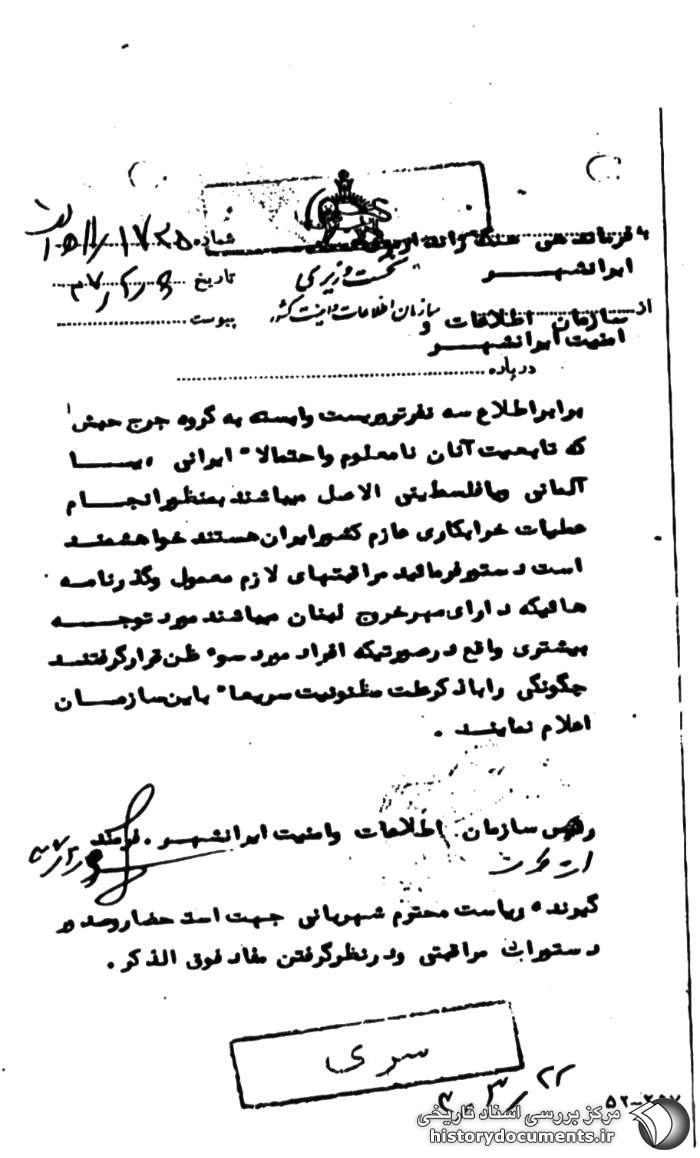 شماره
تاریخ
پیوست
به فرماندهی هنگ ژاندارمری
ایرانشهر
نخست وزیری
سازمان اطلاعات و امنیت کشور
از سازمان اطلاعات و
امنیت ایرانشهر
درباره
برابر اطلاع سه نفر تروریست وابسته به گروه جرج حبش
که تابعیت آنان نامعلوم و احتمالا" ایرانی ، یا
آلمانی و یا فلسطینی الاصل میباشند بمنظور انجام
عملیات خرابکاری عازم کشور ایران هستند خواهشمند
است دستور فرمائید مراقبتهای لازم معمول و گذرنامه
هائیکه دارای مهر خروج لبنان میباشند مورد توجه
بیشتری واقع در صورتیکه افراد مورد سوء ظن قرار گرفتند
چگونگی را با ذکر علت مظنونیت سریعا" باین سازمان
اعلام نمایند .
رئیس سازمان اطلاعات و امنیت ایرانشهر .
گیرنده ریاست محترم شهربانی جهت استحضار و صدور
دستورات مراقبتی و در نظر گرفتن مفاد فوق الذکر .
سری
۲۲
۵۲-۲۵۷
مرکز بررسی اسناد تاریخی
historydocuments.ir